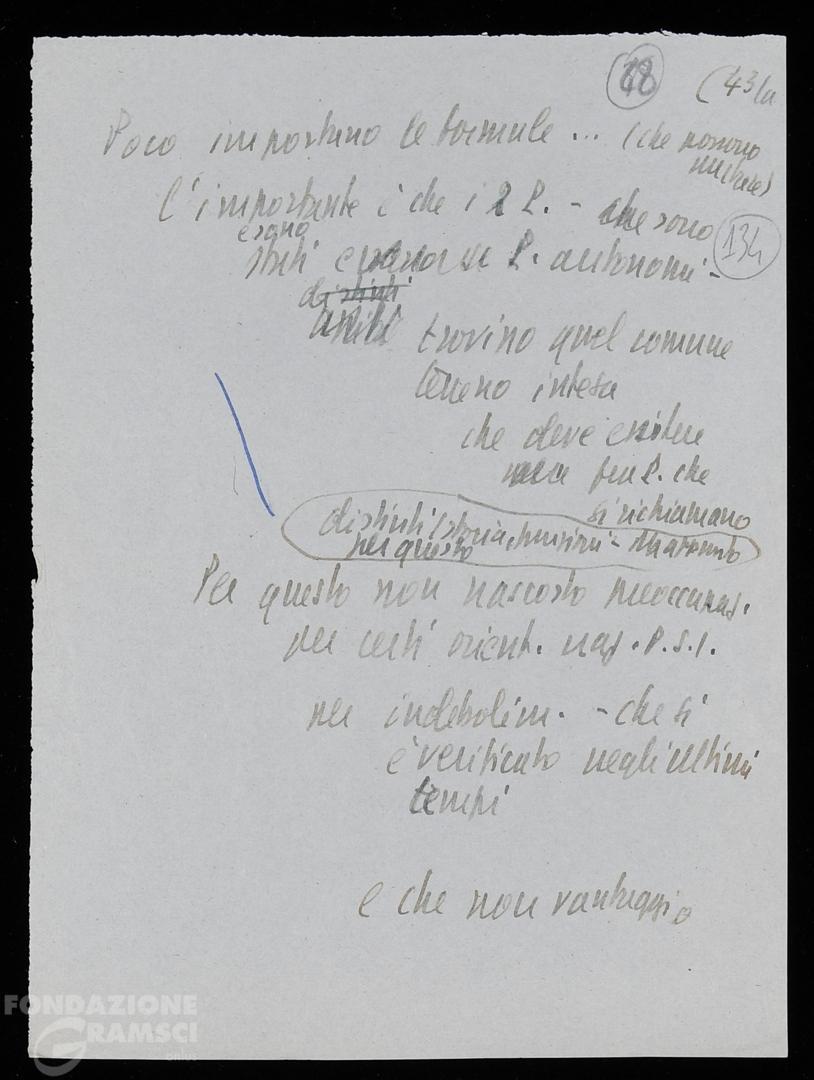 18 (43/a
Poco importano le formule ... (che possono
mutare)
L'importante è che i 2 P. - che sono
134
erano
stati P. autonomi -
distinti
trovino quel comune
terreno intesa
che deve esistere
fra P. che
si richiamano
distinti (storia,
per questo
Per questo non nascosto preoccupaz.
per certi orient. naz. P.S.I.
per indebolim. - che si
è verificato negli ultimi
tempi
e che non vantaggio
FONDAZIONE
GRAMSCI
onlus